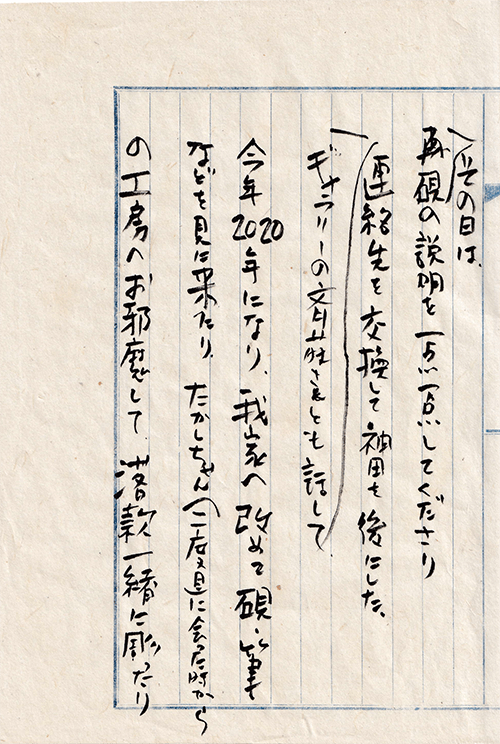 その日は、
再硯の説明を一点一点してくださり
連絡先を交換して神田を後にした。
ギャラリーの さんとも話して
今年2020年になり、我家へ改めて硯・筆
などを見に来たり、たかしちゃん(二度目に会った時から
の工房へお邪魔して、落款一緒に彫ったり